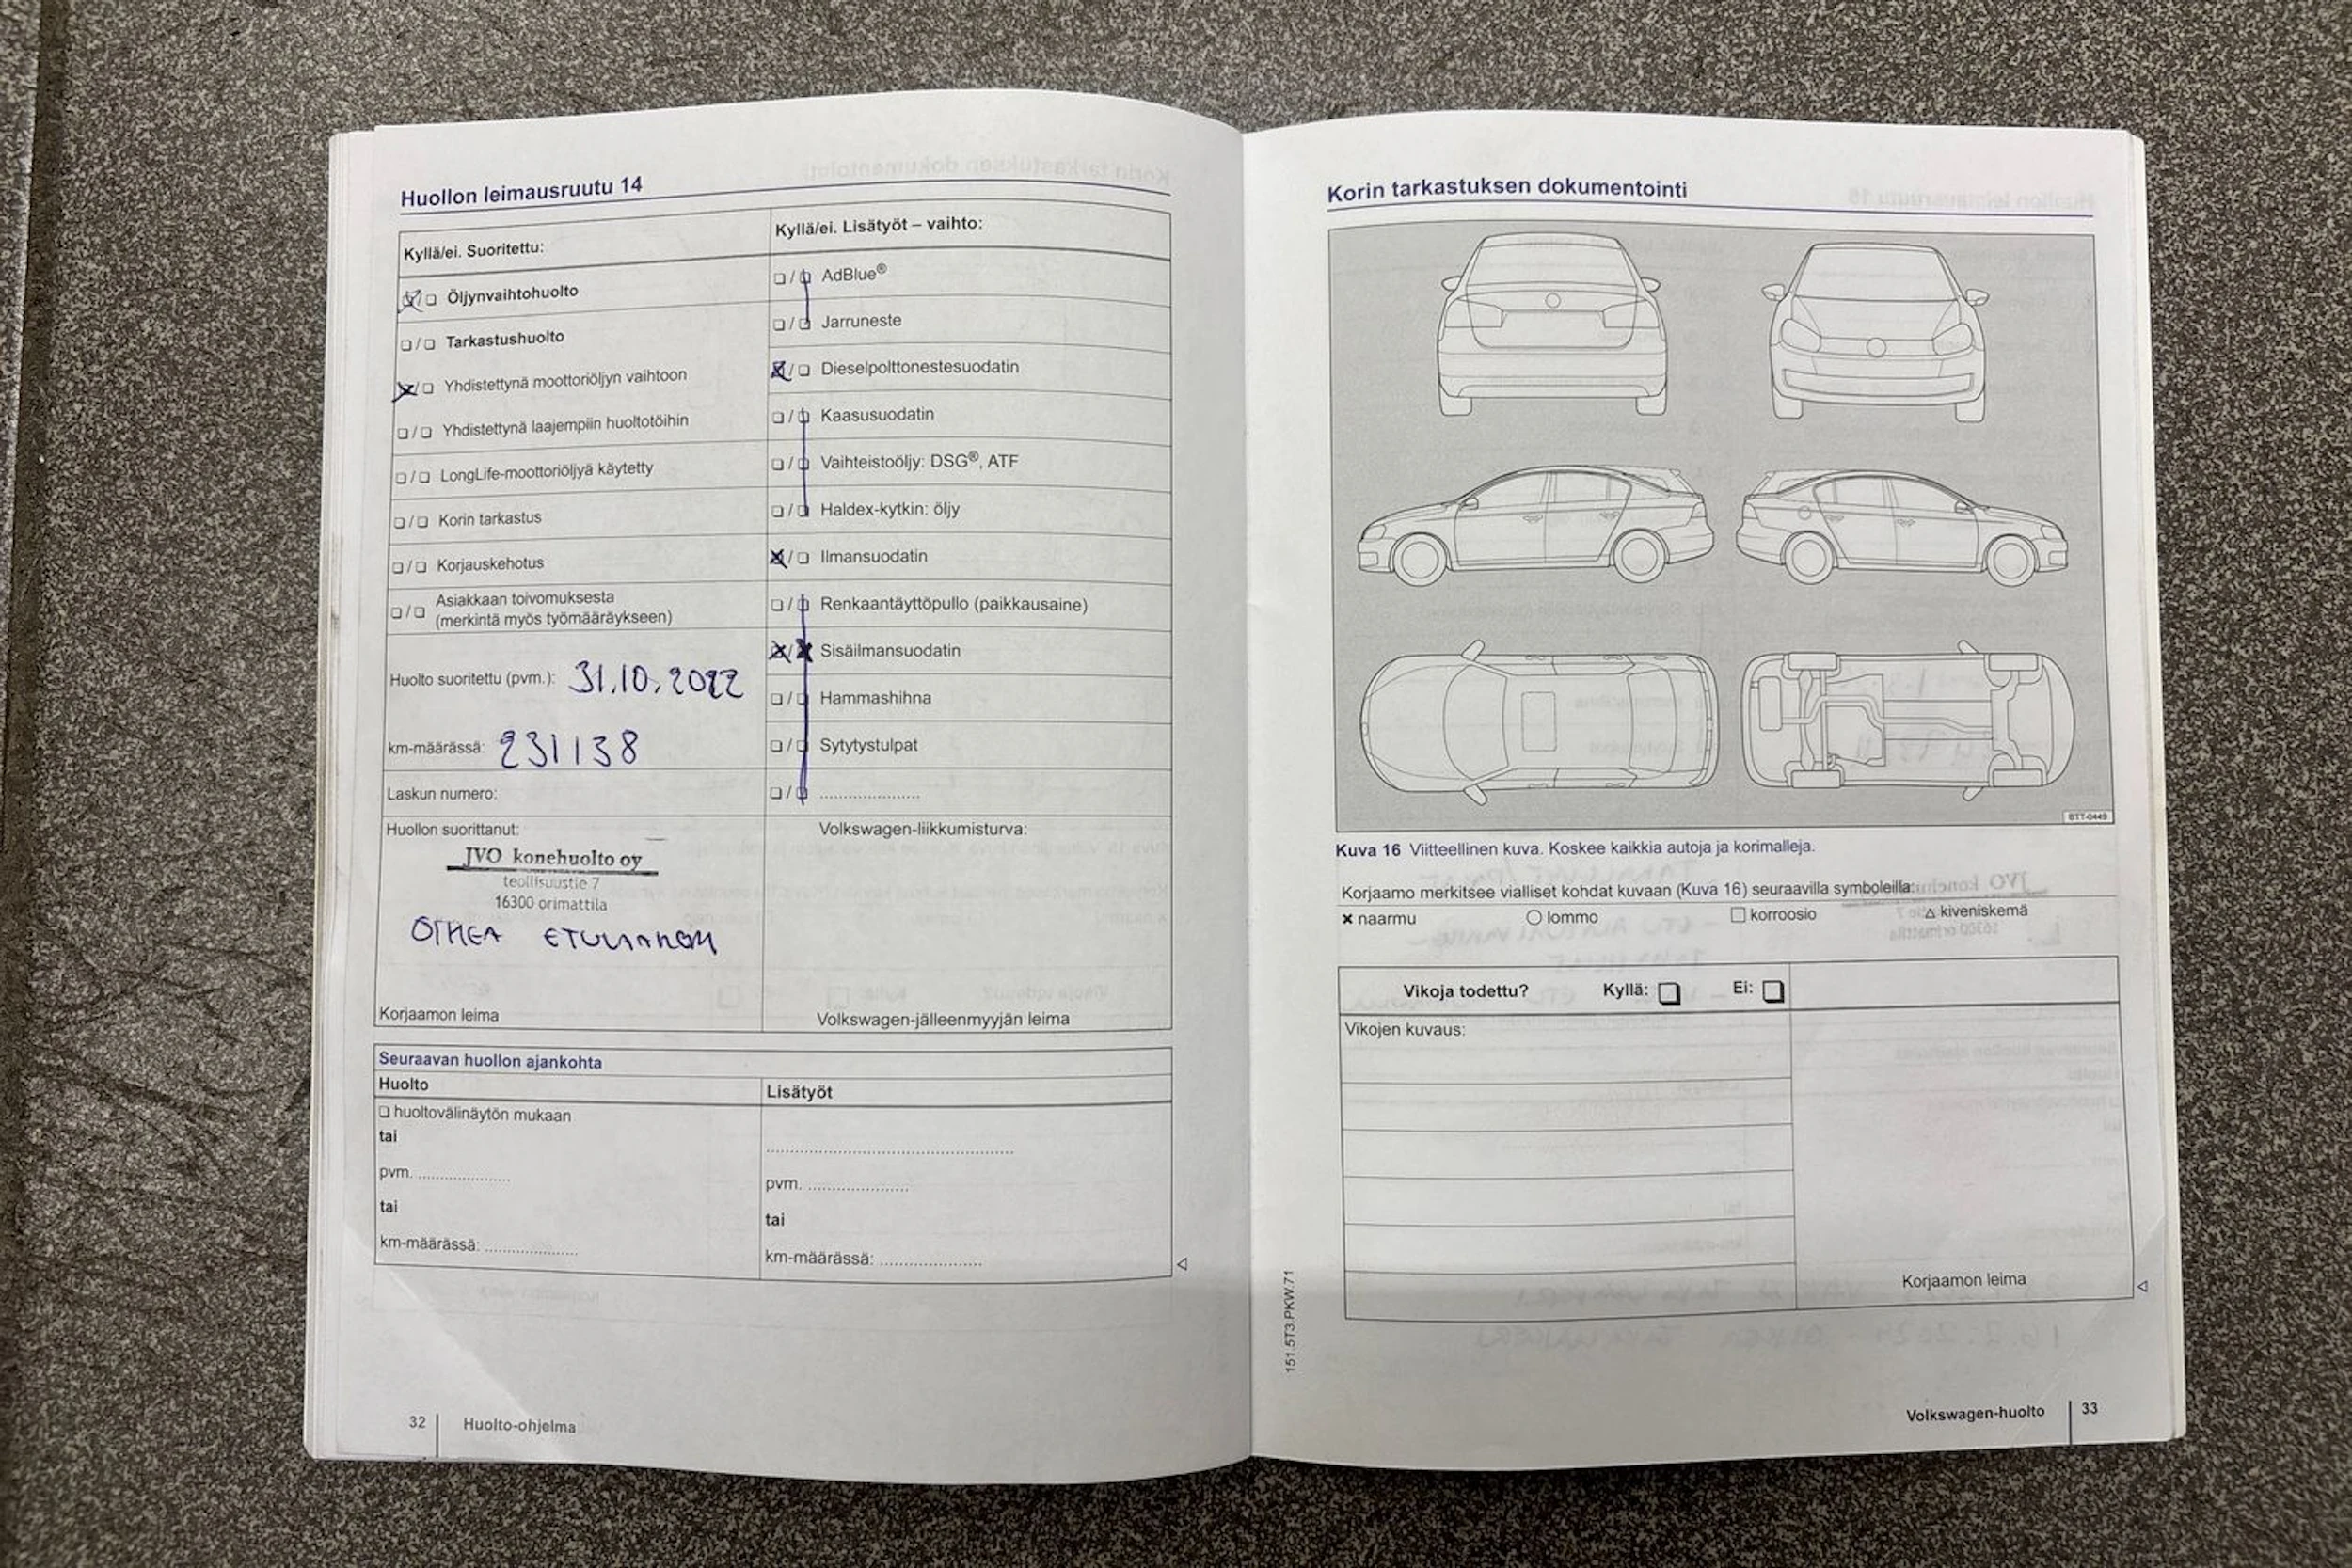 Huollon leimausruutu 14
Kyllä/ei. Suoritettu:
☒/❏ Öljynvaihtohuolto
❏/❏ Tarkastushuolto
☒/❏ Yhdistettynä moottoriöljyn vaihtoon
❏/❏ Yhdistettynä laajempiin huoltotöihin
❏/❏ LongLife-moottoriöljyä käytetty
❏/❏ Korin tarkastus
❏/❏ Korjauskehotus
❏/❏ Asiakkaan toivomuksesta
(merkintä myös työmääräykseen)
Huolto suoritettu (pvm.): 31.10.2022
km-määrässä: 231138
Laskun numero:
Huollon suorittanut:
JVO konehuolto oy
teollisuustie 7
16300 orimattila
OIKEA ETULAAKERI
Korjaamon leima
Kyllä/ei. Lisätyöt – vaihto:
❏/❏ AdBlue®
❏/❏ Jarruneste
☒/❏ Dieselpolttonestesuodatin
❏/❏ Kaasusuodatin
❏/❏ Vaihteistoöljy: DSG®, ATF
❏/❏ Haldex-kytkin: öljy
☒/❏ Ilmansuodatin
❏/❏ Renkaantäyttöpullo (paikkausaine)
☒/☒ Sisäilmansuodatin
❏/❏ Hammashihna
❏/❏ Sytytystulpat
❏/❏ ....................
Volkswagen-liikkumisturva:
Volkswagen-jälleenmyyjän leima
Seuraavan huollon ajankohta
Huolto
❏ huoltovälinäytön mukaan
tai
pvm. ....................
tai
km-määrässä: ....................
Lisätyöt
..................................................
pvm. ....................
tai
km-määrässä: ....................
32 Huolto-ohjelma
Korin tarkastuksen dokumentointi
BTT-0449
Kuva 16 Viitteellinen kuva. Koskee kaikkia autoja ja korimalleja.
Korjaamo merkitsee vialliset kohdat kuvaan (Kuva 16) seuraavilla symboleilla:
× naarmu ○ lommo □ korroosio △ kiveniskemä
Vikoja todettu? Kyllä: ❏ Ei: ❏
Vikojen kuvaus:
Korjaamon leima
151.5T3.PKW.71
Volkswagen-huolto 33